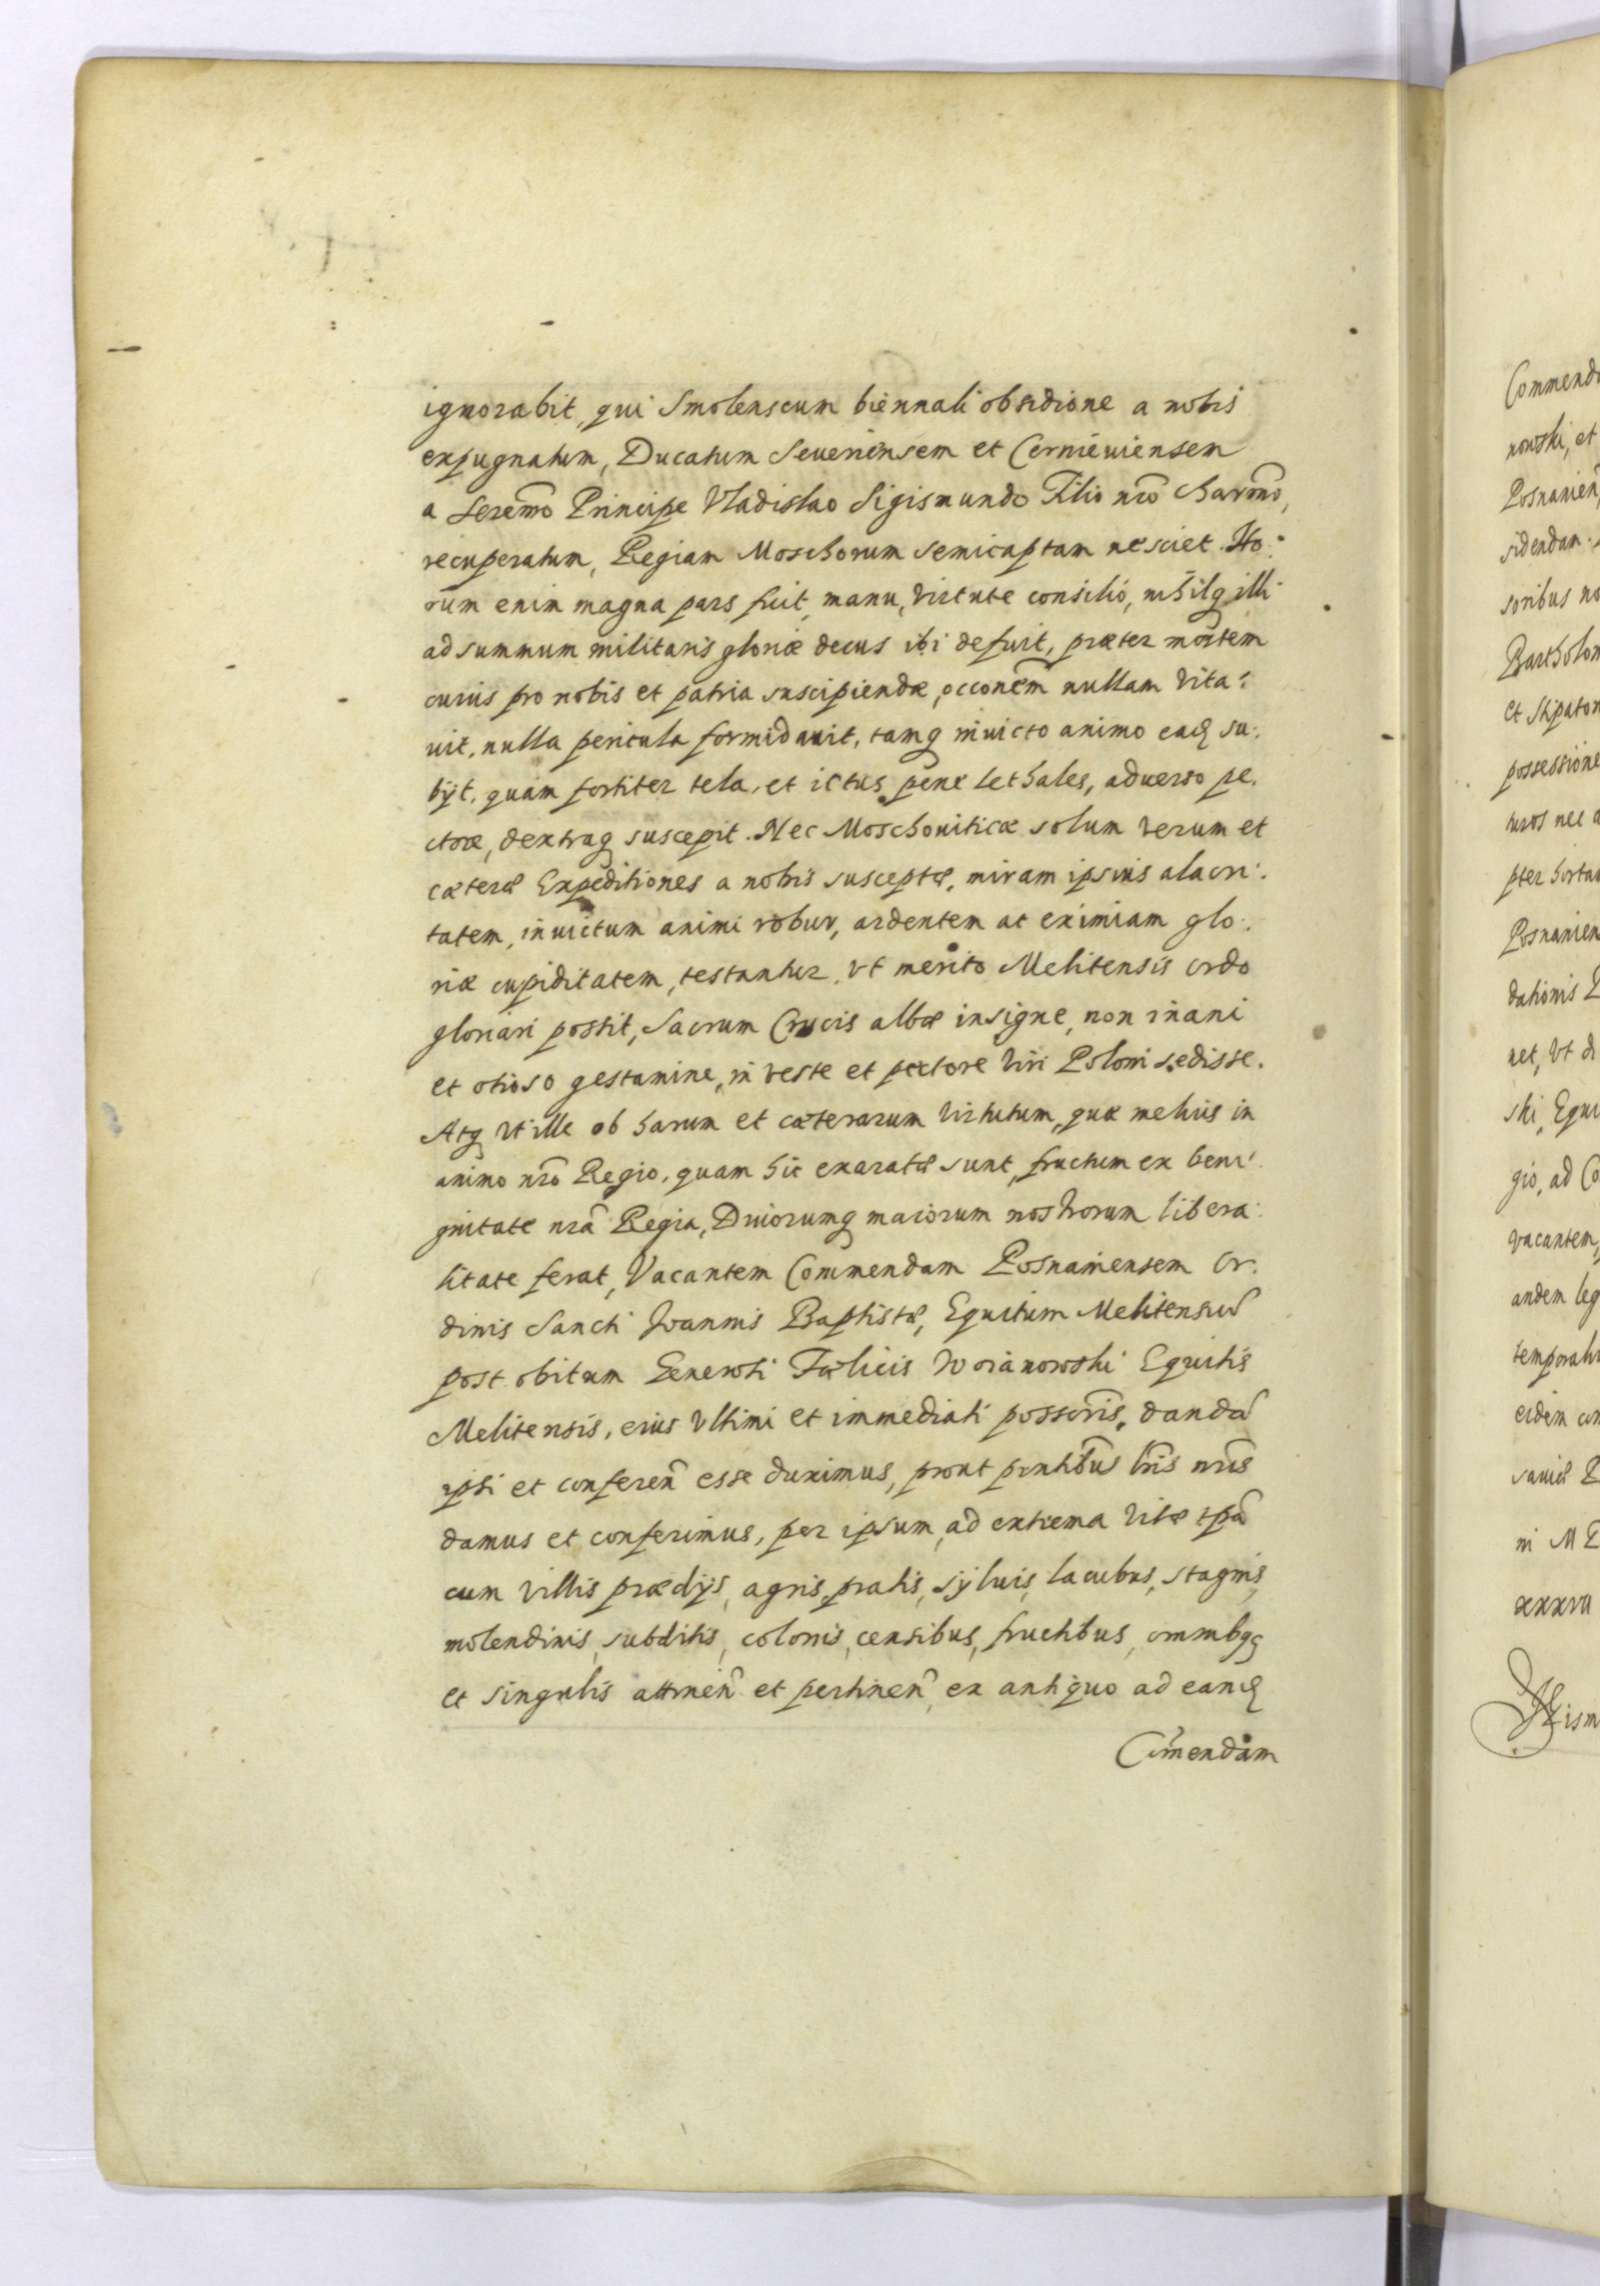 ignorabit, qui Smolenscum biennali obsidione a nobis
expugnatum, Ducatum Seueriensem et Cernieuiensem
a Seremo Principe Vladislao Sigismundo Filio nro charmo,
recuperatum, Regiam Moschorum semicaptam nesciet. Ho:
rum enim magna pars fuit, manu, virtute consilio, nihilq illi
ad summum militaris gloriæ decus ibi defuit, præter mortem
cuius pro nobis et patria suscipiendæ, occonem nullam vita:
uit, nulla pericula formidauit, tamq inuicto animo eaq su:
bijt, quam fortiter tela, et ictus pene lethales, aduerso pe.
ctore, dextraq suscepit. Nec Moschouiticæ solum verum et
cæteræ Expeditiones a nobis susceptæ, miram ipsius alacri:
tatem, inuictum animi robur, ardentem ac eximiam glo:
riæ cupiditatem, testantur. vt merito Melitensis ordo
gloriari possit, Sacrum Crucis albæ insigne, non inani
et otioso gestamine, in veste et pectore viri Poloni sedisse.
Atq vt ille ob harum et cæterarum virtutum, quæ melius in
animo nro Regio, quam hic exaratæ sunt, fructum ex beni:
gnitate nra Regia, Diuorumq maiorum nostrorum libera:
litate ferat, Vacantem Commendam Posnaniensem Or.
dinis Sancti Joannis Baptistæ, Equitum Melitensiu
post obitum Generosi Fælicis Woianowski Equitis
Melitensis, eius vltimi et immediati possoris, danda
ipsi et conferen esse duximus, prout pntibus lris nris
damus et conferimus, per ipsum, ad extrema vitæ tpa
cum villis prædijs, agris, pratis, syluis, lacubus, stagnis,
molendinis, subditis, colonis, censibus, fructibus, omnibq
et singulis attinen et pertinen, ex antiquo ad eandq
Comendam
Commend
nowski, et
Posnanien
sidendam.
soribus no
Bartholom
et stipator
possessione
turos nec a
pter horta
Posnanien
dationis
net, vt
ski, Equi
gio, ad Co
vacantem,
andem leg
temporali
eidem
ni M
xxxvii